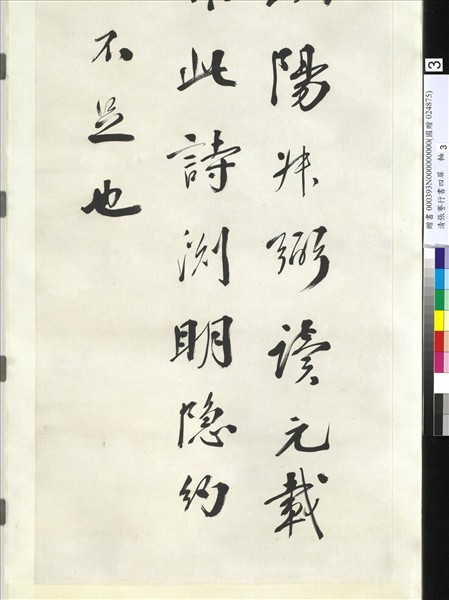 陽叔弼讀元載
此詩渕明隐約
不足也
3
贈書 000393N000000000(國贈 024875)
清張謇行書四屏 軸 3